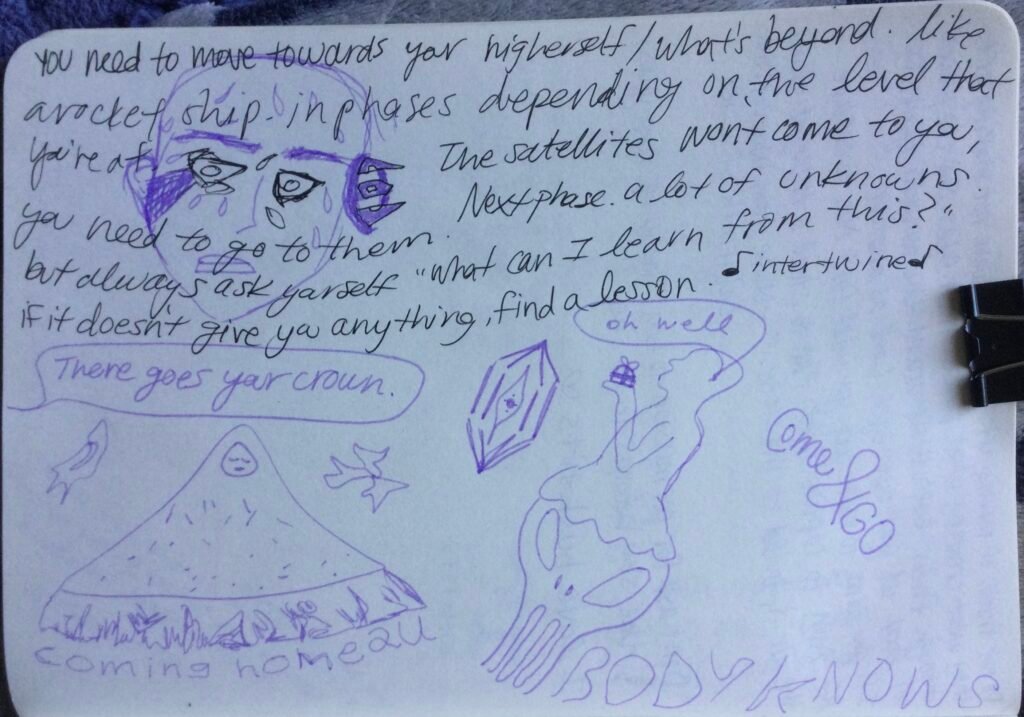 you need to move towards your higherself/what's beyond. like
a rocket ship. in phases depending on the level that
you're at. The satellites wont come to you,
you need to go to them. Next phase. a lot of unknowns.
but always ask yourself "what can I learn from this?"
if it doesn't give you anything, find a lesson. ♪intertwine♪
oh well
There goes your crown.
Come & GO
coming home 2 U
BODY KNOWS